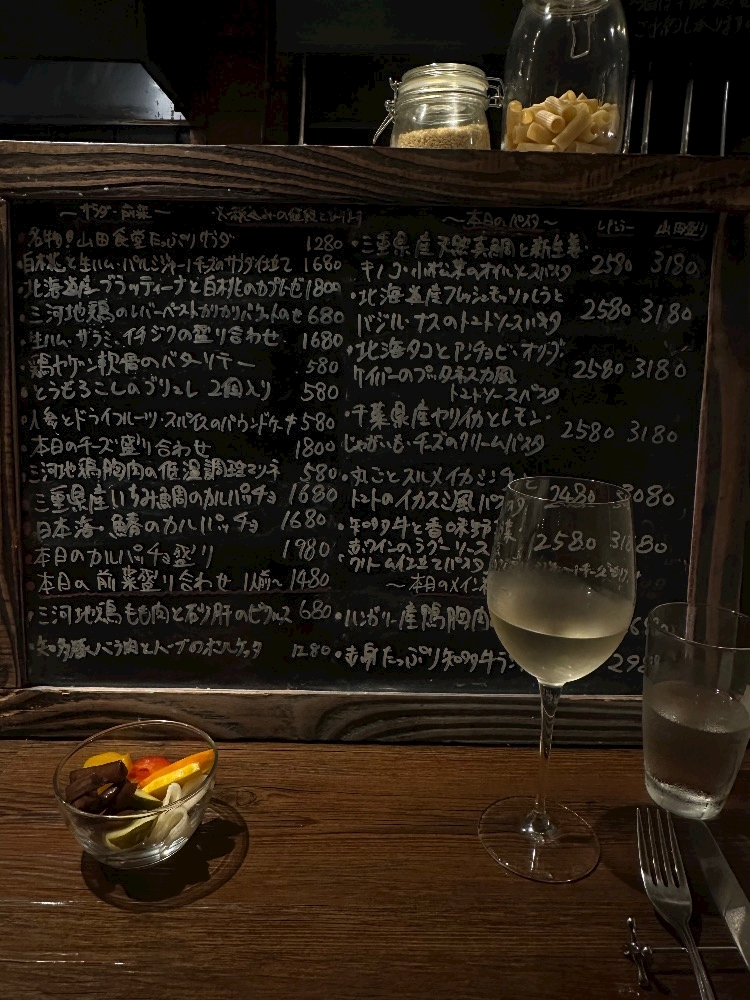 〜サラダ・前菜〜 ※税込みの値段となります
名物!山田食堂たっぷりサラダ 1280
白桃と生ハム・パルミジャーノチーズのサラダ仕立て 1680
北海道産ブラッティーナと白桃のカプレーゼ 1800
三河地鶏のレバーペーストカリカリバケットのせ 680
生ハム・サラミ・イチジクの盛り合わせ 1680
鶏ヤゲン軟骨のバターソテー 580
とうもろこしのブリュレ 2個入り 580
人参とドライフルーツ・スパイスのパウンドケーキ 580
本日のチーズ盛り合わせ 1800
三河地鶏胸肉の低温調理 580
三重県産いすみ鯛のカルパッチョ 1680
日本海・鯖のカルパッチョ 1680
本日のカルパッチョ盛り 1980
本日の前菜盛り合わせ 1人前〜 1480
三河地鶏もも肉と砂肝のピクルス 680
知多豚バラ肉とハーブのポルケッタ 1280
〜本日のパスタ〜 レギュラー 山田盛り
・三重県産天然真鯛と新生姜・
キノコ・小松菜のオイルパスタ 2580 3180
・北海道産フレッシュモッツァレラと
バジル・ナスのトマトソースパスタ 2580 3180
・北海タコとアンチョビ・オリーブ・
ケイパーのプッタネスカ風 2580 3180
トマトソースパスタ
・千葉県産ヤリイカとレモン・
じゃがいも・チーズのクリームパスタ 2580 3180
・丸ごとスルメイカとミニ
トマトのイカスミ風パスタ 2480 3080
・知多牛と香味野菜
赤ワインのラグーソース 2580 3180
クリーム仕立てパスタ
〜本日のメイン
・ハンガリー産鴨胸肉
・赤身たっぷり知多牛ラ